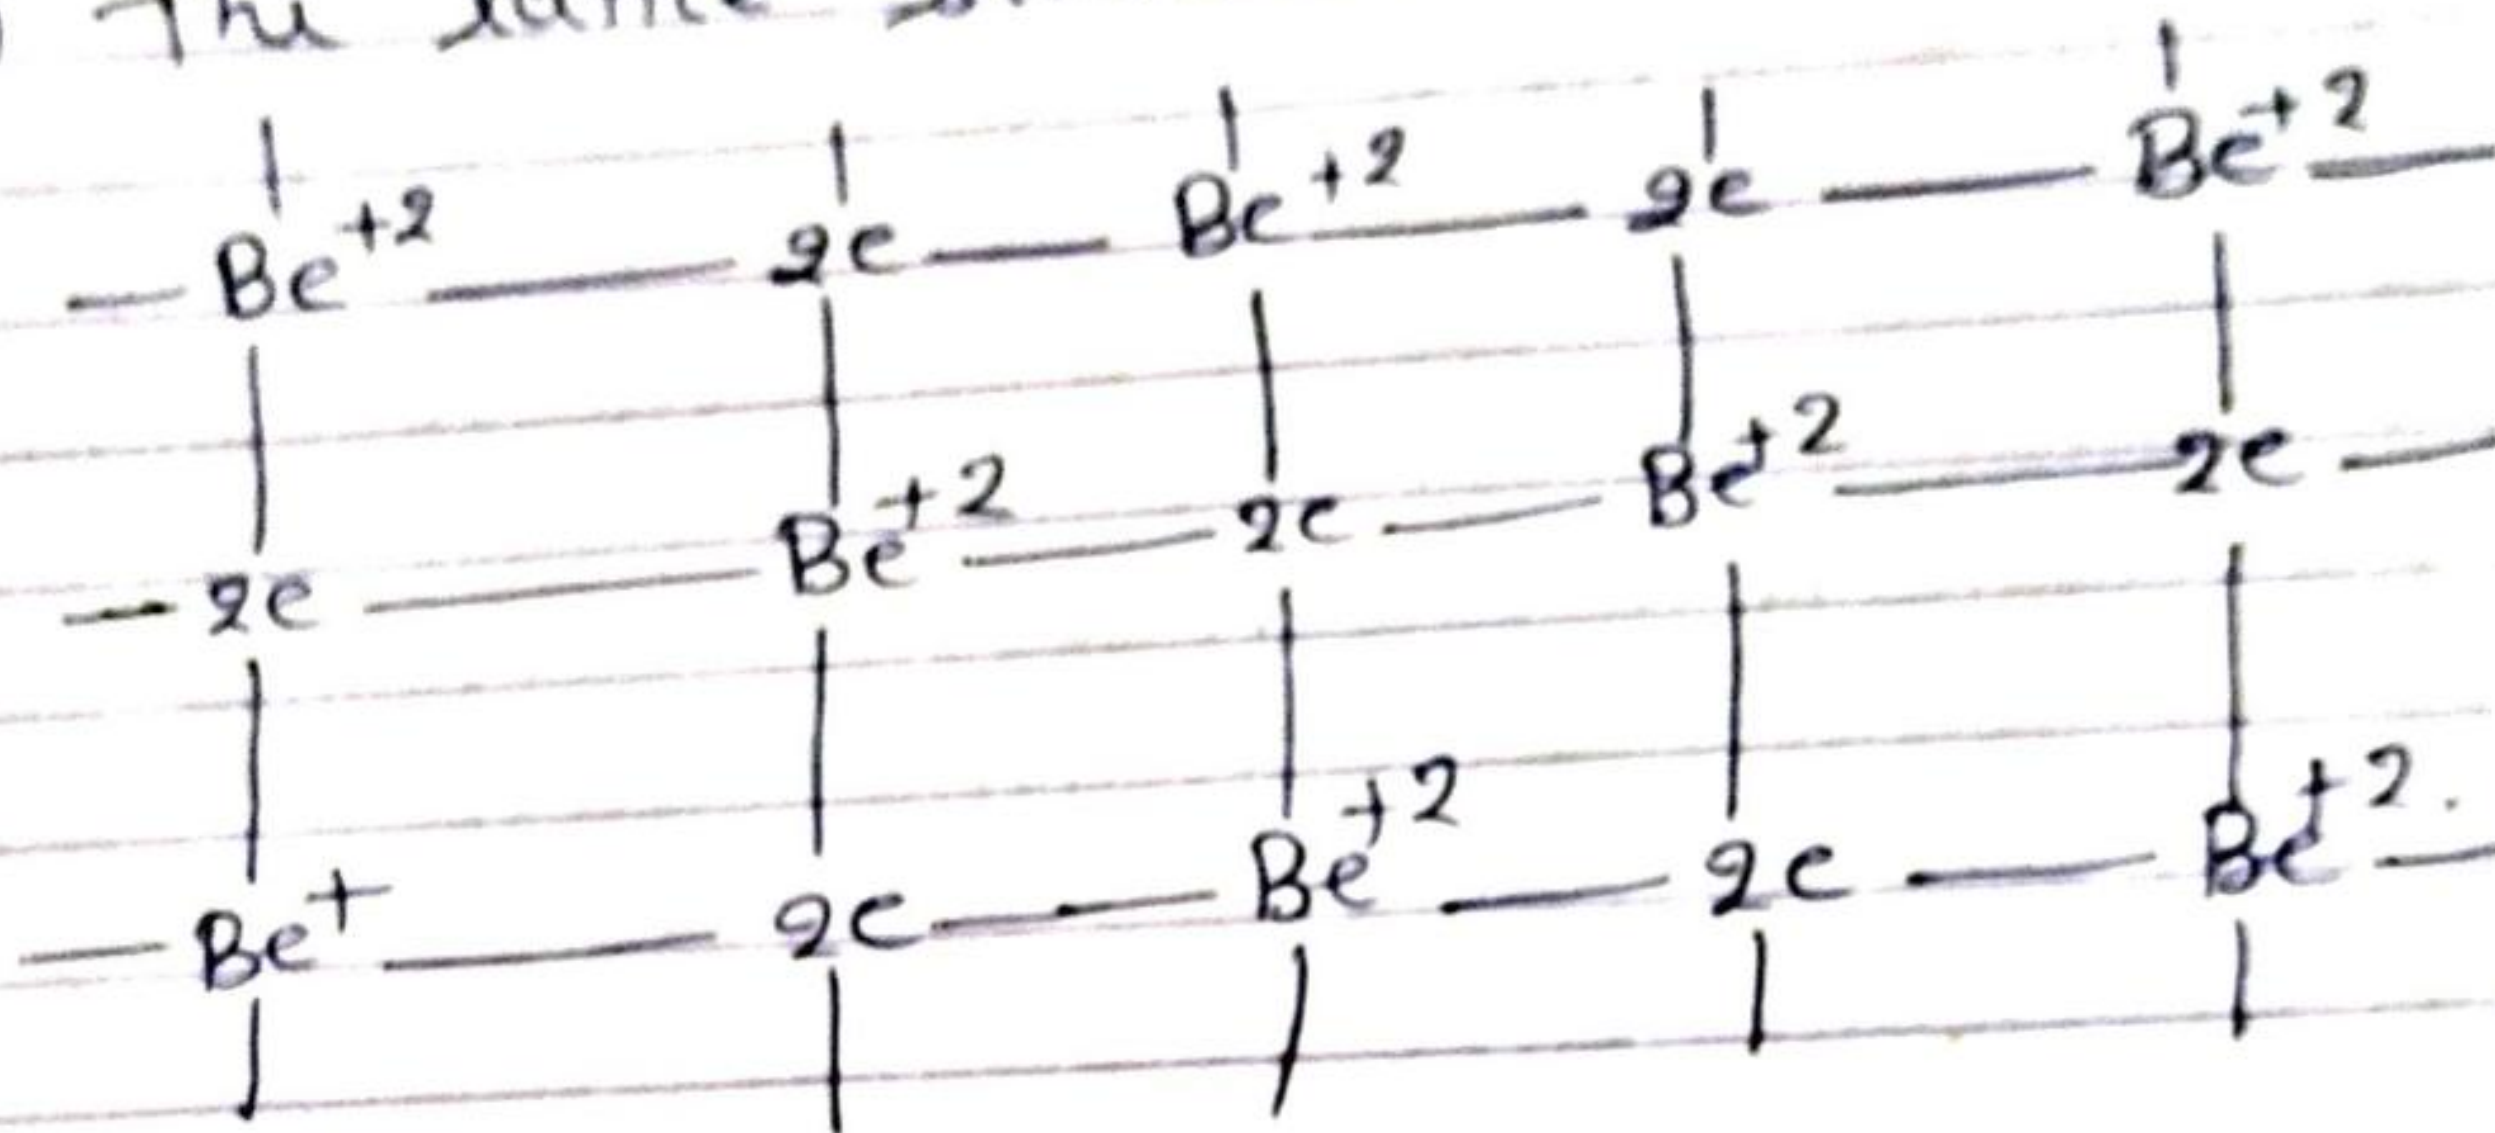 The same
Be+2 2e Be+2 2e Be+2
2e Be+2 2e Be+2 2e
Be+ 2e Be+2 2e Be+2.